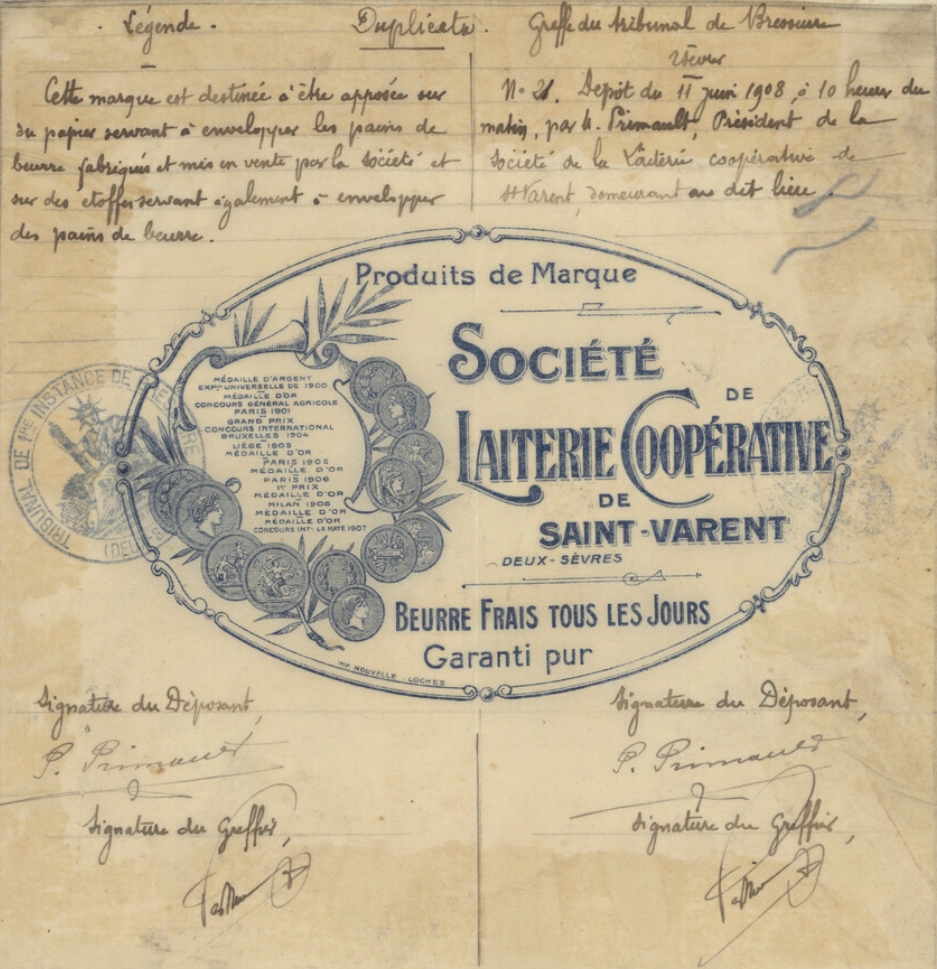 Légende.
Duplicata.
Greffe du tribunal de Bressuire
2 Sèvres
Cette marque est destinée à être apposée sur
du papier servant à envelopper les pains de
beurre fabriqués et mis en vente par la Société et
sur des etoffes servant également à envelopper
des pains de beurre.
No 21. Dépôt du 11 juin 1908, à 10 heures du
matin, par M. Primault, Président de la
Société de la Laiterie coopérative de
St Varent, demeurant au dit lieu.
Produits de Marque
SOCIÉTÉ
DE
LAITERIE COOPÉRATIVE
DE
SAINT-VARENT
DEUX-SÈVRES
BEURRE FRAIS TOUS LES JOURS
Garanti pur
MÉDAILLE D'ARGENT
EXPON UNIVERSELLE DE 1900
MÉDAILLE D'OR
CONCOURS GÉNÉRAL AGRICOLE
PARIS 1901
GRAND PRIX
CONCOURS INTERNATIONAL
BRUXELLES 1904
LIÈGE 1905
MÉDAILLE D'OR
PARIS 1905
MÉDAILLE D'OR
PARIS 1906
1er PRIX
MÉDAILLE D'OR
MILAN 1906
MÉDAILLE D'OR
MÉDAILLE D'OR
CONCOURS INTL LA HAYE 1907
IMP. NOUVELLE LOCHES
TRIBUNAL DE 1RE INSTANCE DE
Signature du Déposant,
P. Primault
Signature du Greffier,
Signature du Déposant,
P. Primault
Signature du Greffier,